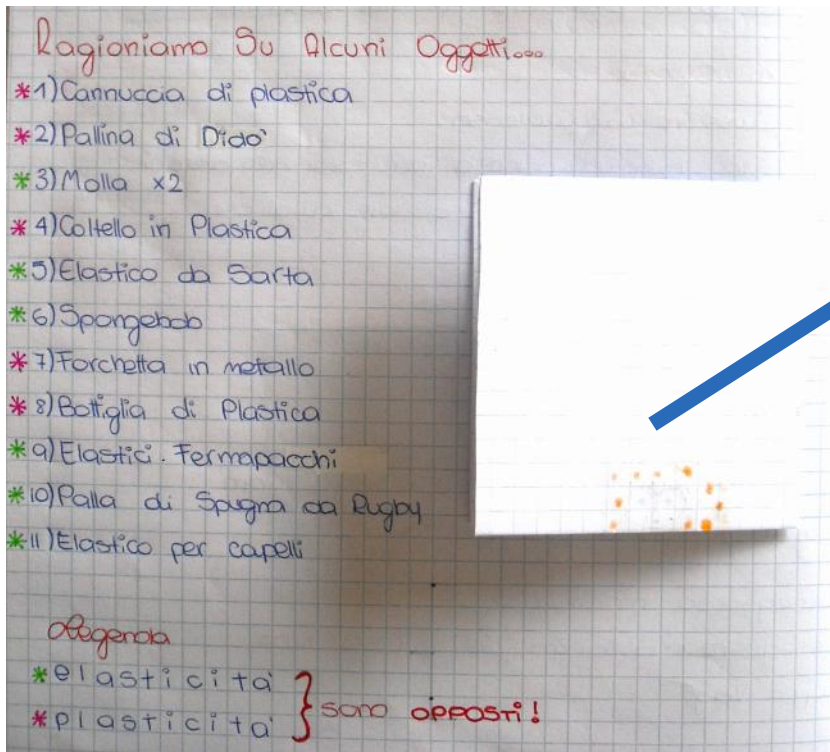 Ragioniamo Su Alcuni Oggetti...
*1) Cannuccia di plastica
*2) Pallina di Didò
*3) Molla x2
*4) Coltello in Plastica
*5) Elastico da Sarta
*6) Spongebob
*7) Forchetta in metallo
*8) Bottiglia di Plastica
*9) Elastici. Fermapacchi
*10) Palla di Spugna da Rugby
*11) Elastico per capelli
Legenda
*elasticità
*plasticità } sono opposti!